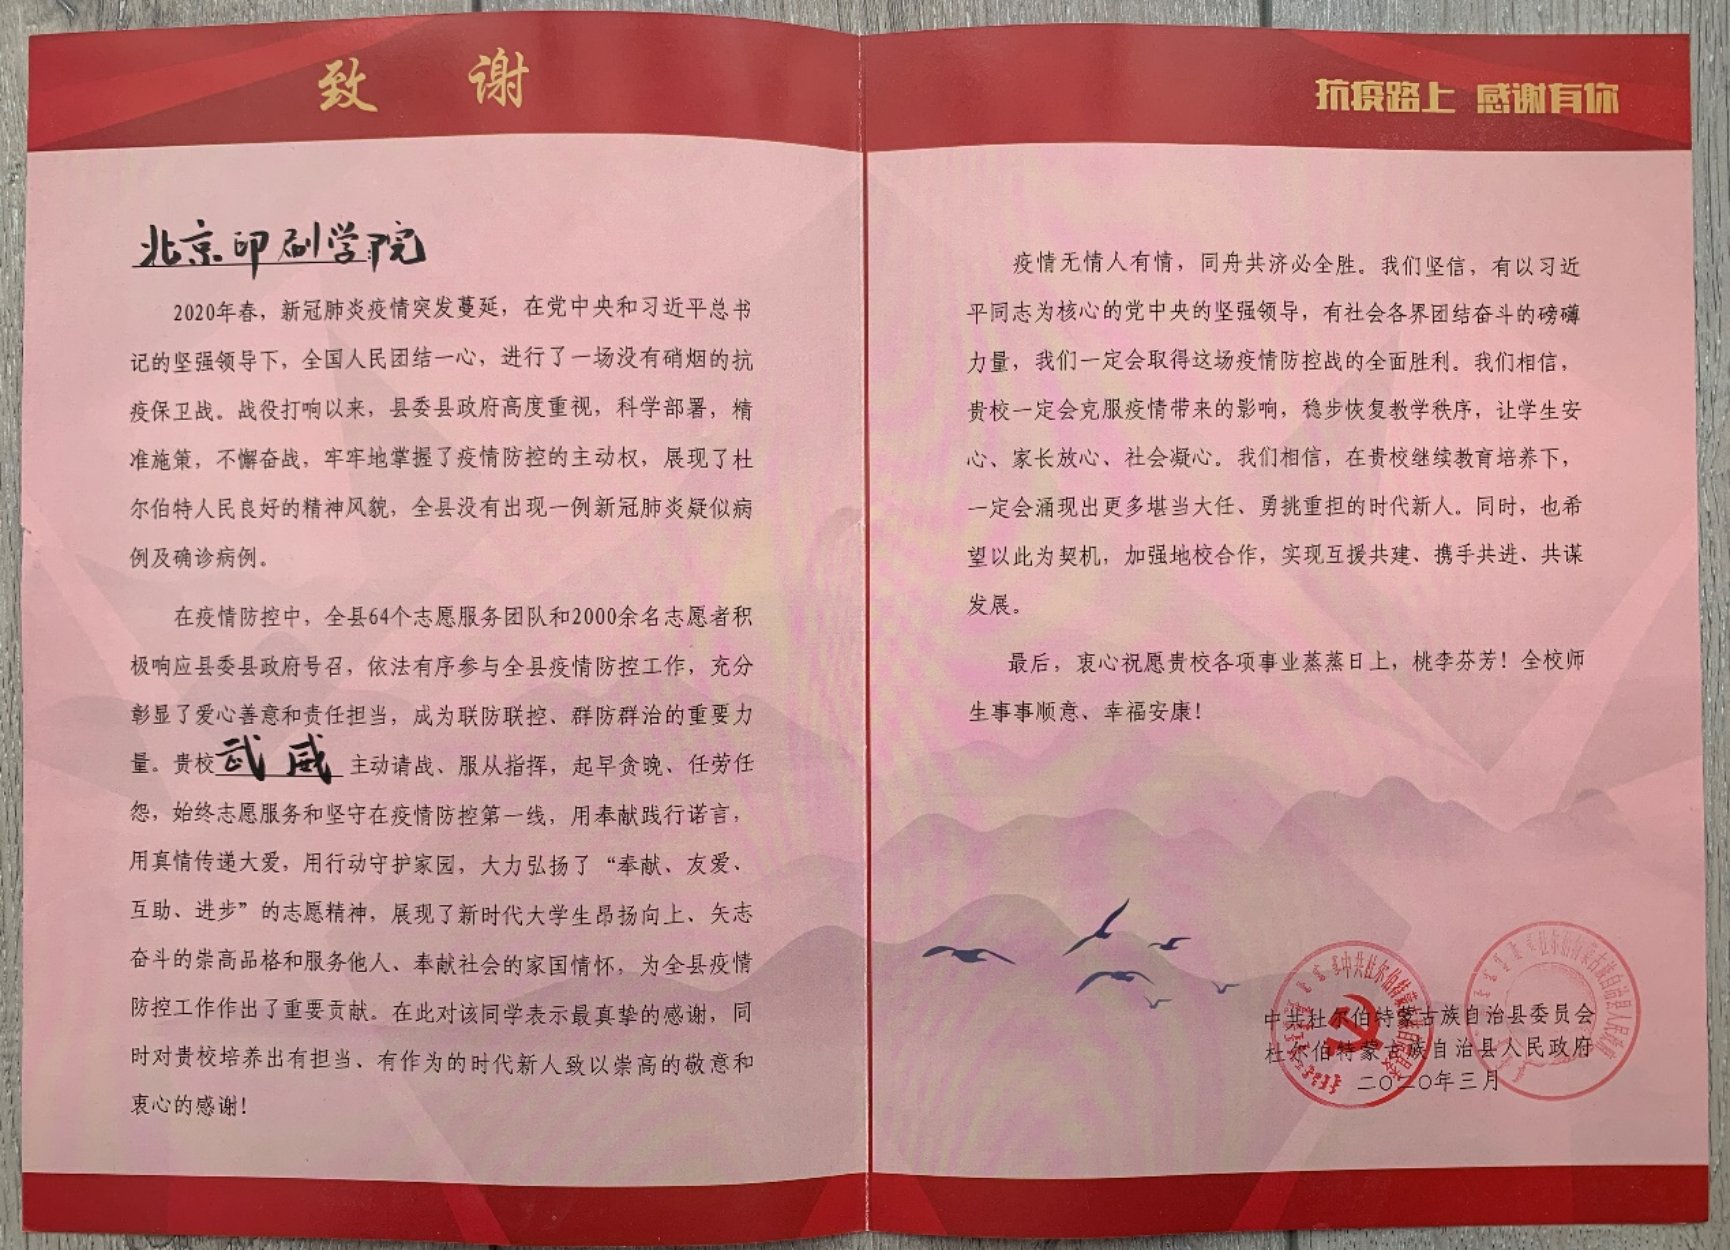 致 谢
北京印刷学院
2020年春，新冠肺炎疫情突发蔓延，在党中央和习近平总书
记的坚强领导下，全国人民团结一心，进行了一场没有硝烟的抗
疫保卫战。战役打响以来，县委县政府高度重视，科学部署，精
准施策，不懈奋战，牢牢地掌握了疫情防控的主动权，展现了杜
尔伯特人民良好的精神风貌，全县没有出现一例新冠肺炎疑似病
例及确诊病例。
在疫情防控中，全县64个志愿服务团队和2000余名志愿者积
极响应县委县政府号召，依法有序参与全县疫情防控工作，充分
彰显了爱心善意和责任担当，成为联防联控、群防群治的重要力
量。贵校武威主动请战、服从指挥，起早贪晚、任劳任
怨，始终志愿服务和坚守在疫情防控第一线，用奉献践行诺言，
用真情传递大爱，用行动守护家园，大力弘扬了“奉献、友爱、
互助、进步”的志愿精神，展现了新时代大学生昂扬向上、矢志
奋斗的崇高品格和服务他人、奉献社会的家国情怀，为全县疫情
防控工作作出了重要贡献。在此对该同学表示最真挚的感谢，同
时对贵校培养出有担当、有作为的时代新人致以崇高的敬意和
衷心的感谢！
抗疫路上 感谢有你
疫情无情人有情，同舟共济必全胜。我们坚信，有以习近
平同志为核心的党中央的坚强领导，有社会各界团结奋斗的磅礴
力量，我们一定会取得这场疫情防控战的全面胜利。我们相信，
贵校一定会克服疫情带来的影响，稳步恢复教学秩序，让学生安
心、家长放心、社会凝心。我们相信，在贵校继续教育培养下，
一定会涌现出更多堪当大任、勇挑重担的时代新人。同时，也希
望以此为契机，加强地校合作，实现互援共建、携手共进、共谋
发展。
最后，衷心祝愿贵校各项事业蒸蒸日上，桃李芬芳！全校师
生事事顺意、幸福安康！
中共杜尔伯特蒙古族自治县委员会
杜尔伯特蒙古族自治县人民政府
二〇二〇年三月
中共杜尔伯特蒙古族自治县委员会
杜尔伯特蒙古族自治县人民政府